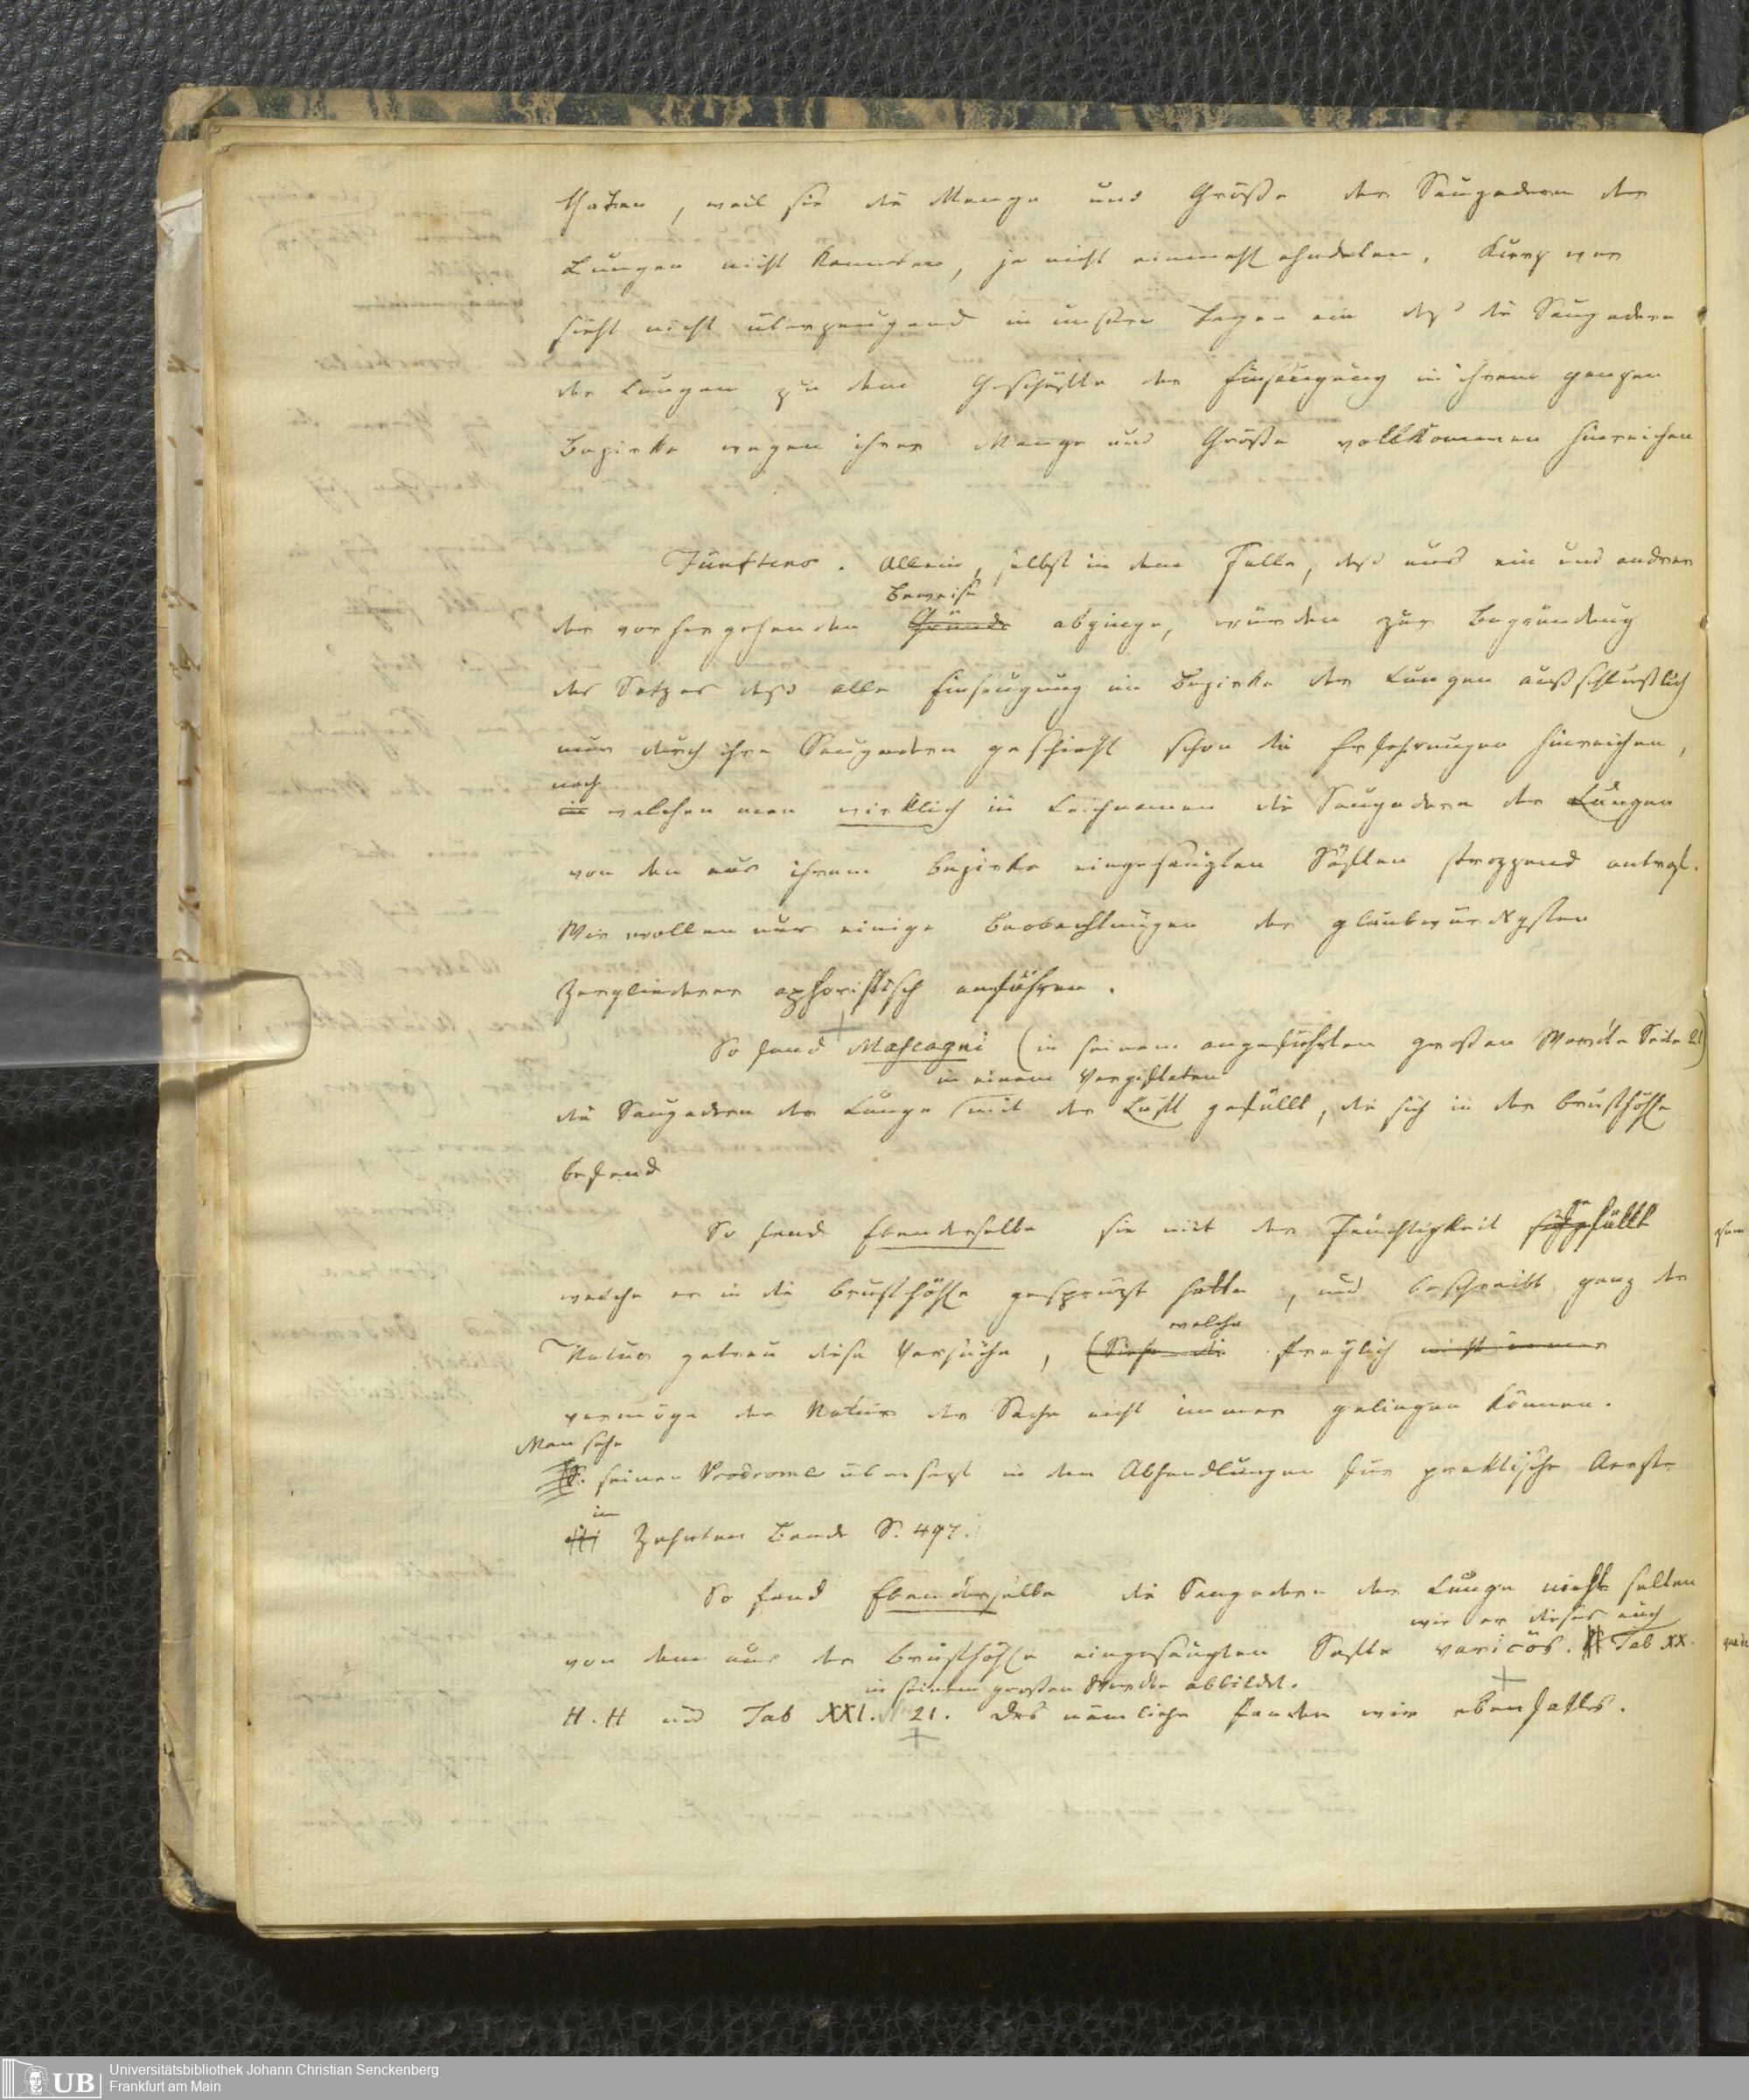 thaten, weil sie die Menge und Größe der Saugadern der
Lungen nicht kannten, ja nicht einmahl ahndeten. Kurz wer
sieht nicht überzeugend in unsern Tagen ein daß die Saugadern
der Lungen zu dem Geschäfte der Einsaugung in ihrem ganzen
Bezirke wegen ihrer Menge und Größe vollkommen hinreichen
Fünftens. Allein, selbst in dem Falle, daß uns ein und anderer
Beweise
der vorhergehenden Gründe abginge, würden zur Begründung
des Satzes daß alle Einsaugung im Bezirke der Lungen außschlußlich
nur durch ihre Saugadern geschieht schon die Erfahrungen hinreichen,
nach
in welchen man wirklich in Leichnamen die Saugadern der Lungen
von den aus ihrem Bezirke eingesaugten Säften strozzend antraf.
Wir wollen nur einige Beobachtungen der glaubwürdigsten
Zergliederer aphoristisch anführen.
So fand Mascagni (in seinem angeführten großen Werke Seite 21)
in einem Vergifteten
die Saugadern der Lunge mit der Luft gefüllt, die sich in der Brusthöhle
befand
So fand Ebenderselbe sie mit der Feuchtigkeit gefüllt
welche er in die Brusthöhle gesprüzt hatte, und beschreibt ganz der
welche
Natur getreu diese Versuche, (Siehe die freylich nicht immer
vermöge der Natur der Sache nicht immer gelingen können.
Man sehe
S. seinen Prodrome übersezt in den Abhandlungen für praktische Aerzte
im
Zehnten Bande S. 497.
So fand Ebenderselbe die Saugadern der Lunge nicht selten
wie er dieses auch
von dem aus der Brusthöhle eingesaugten Safte varicös. Tab XX.
in seinem großen Werke abbildet.
H. H und Tab XXI. 21. Das nämliche fanden wir ebenfalls.
UB
Universitätsbibliothek Johann Christian Senckenberg
Frankfurt am Main